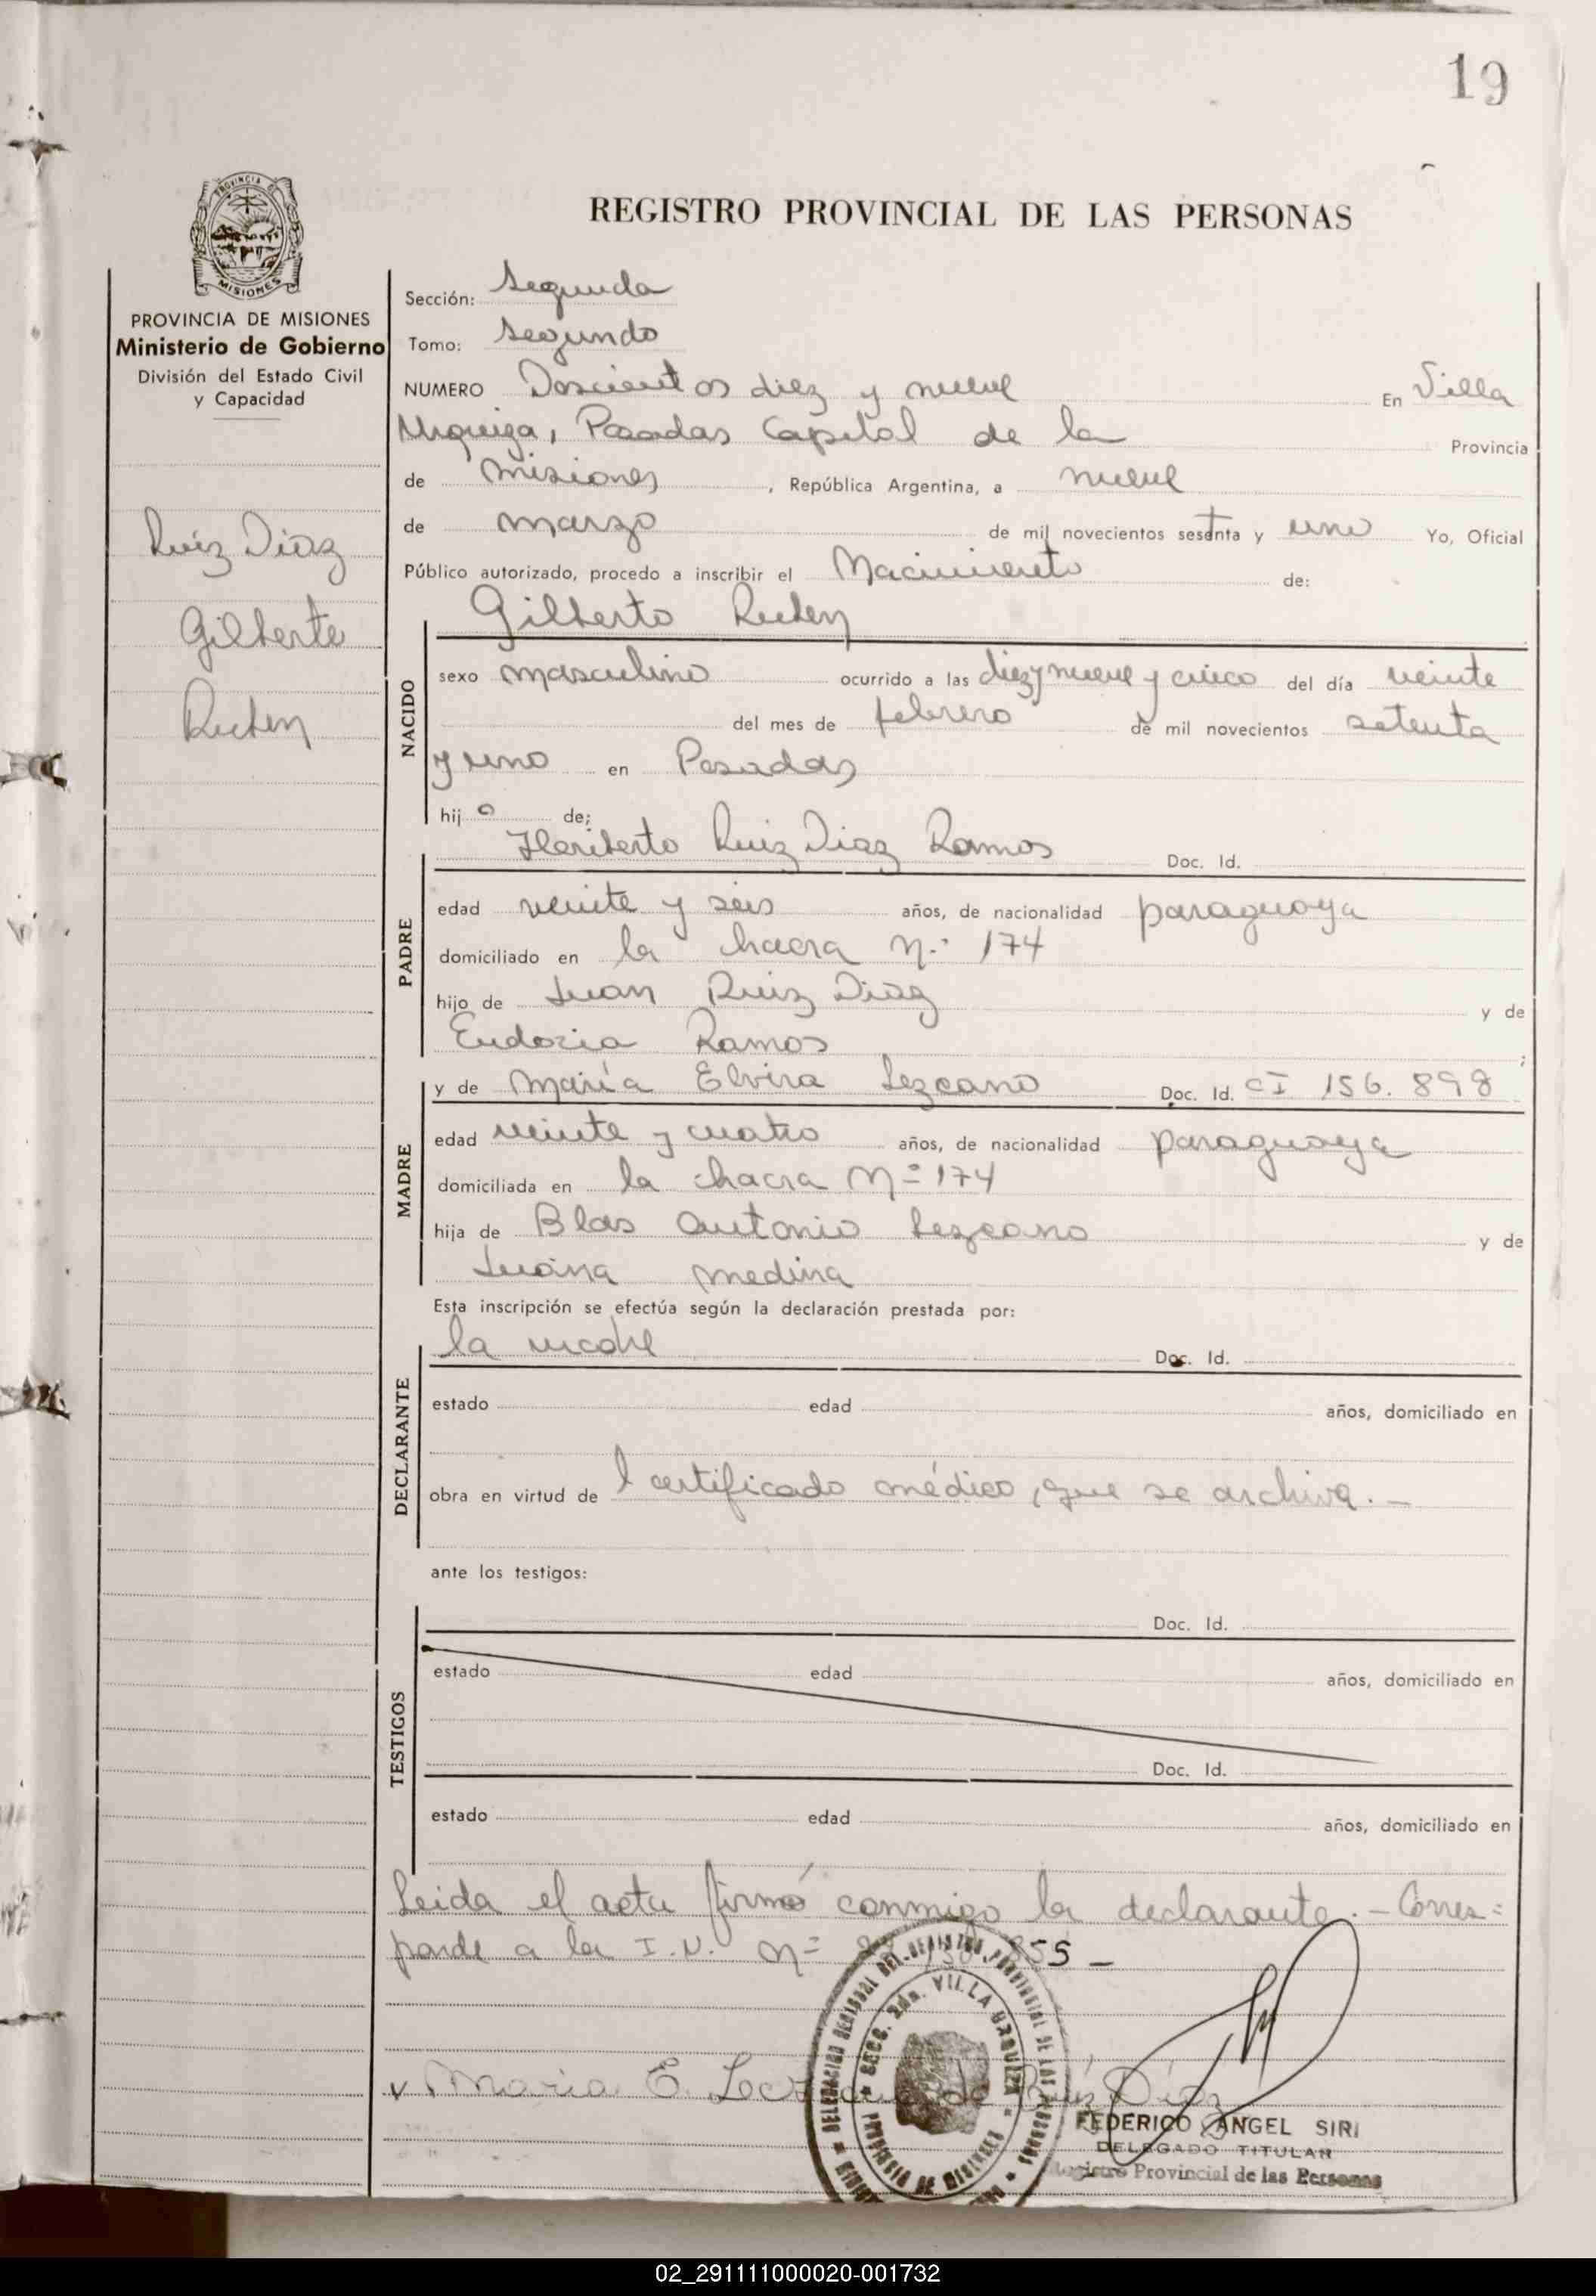 19
PROVINCIA DE
MISIONES
REGISTRO PROVINCIAL DE LAS PERSONAS
PROVINCIA DE MISIONES
Ministerio de Gobierno
División del Estado Civil
y Capacidad
Ruiz Diaz
Gilberto
Ruben
Sección: Segunda
Tomo: Segundo
NUMERO Doscientos diez y nueve En Villa
Urquiza, Posadas Capital de la Provincia
de Misiones, República Argentina, a nueve
de marzo de mil novecientos setenta y uno Yo, Oficial
Público autorizado, procedo a inscribir el Nacimiento de:
Gilberto Ruben
NACIDO
sexo masculino ocurrido a las diez y nueve y cinco del día veinte
del mes de febrero de mil novecientos setenta
y uno en Posadas
hijo de;
Heriberto Ruiz Diaz Ramos Doc. Id.
PADRE
edad veinte y seis años, de nacionalidad paraguaya
domiciliado en la chacra N.° 174
hijo de Juan Ruiz Diaz y de
Eudosia Ramos ;
y de María Elvira Lezcano Doc. Id. CI 156.898
MADRE
edad veinte y cuatro años, de nacionalidad paraguaya
domiciliada en la chacra N= 174
hija de Blas Antonio Lezcano y de
Juana Medina
Esta inscripción se efectúa según la declaración prestada por:
la madre Doc. Id.
DECLARANTE
estado edad años, domiciliado en
obra en virtud del certificado médico, que se archiva.-
ante los testigos:
Doc. Id.
TESTIGOS
estado edad años, domiciliado en
Doc. Id.
estado edad años, domiciliado en
Leida el acta firmó conmigo la declarante.- Corres=
ponde a la I.N. N= 855 -
Maria E. Lezcano de Ruíz Díaz
DELEGACION REGIONAL DEL REGISTRO PROVINCIAL DE LAS PERSONAS
SECC. 2da. VILLA URQUIZA
PROVINCIA DE MISIONES
FEDERICO ANGEL SIRI
DELEGADO TITULAR
Registro Provincial de las Personas
02_291111000020-001732